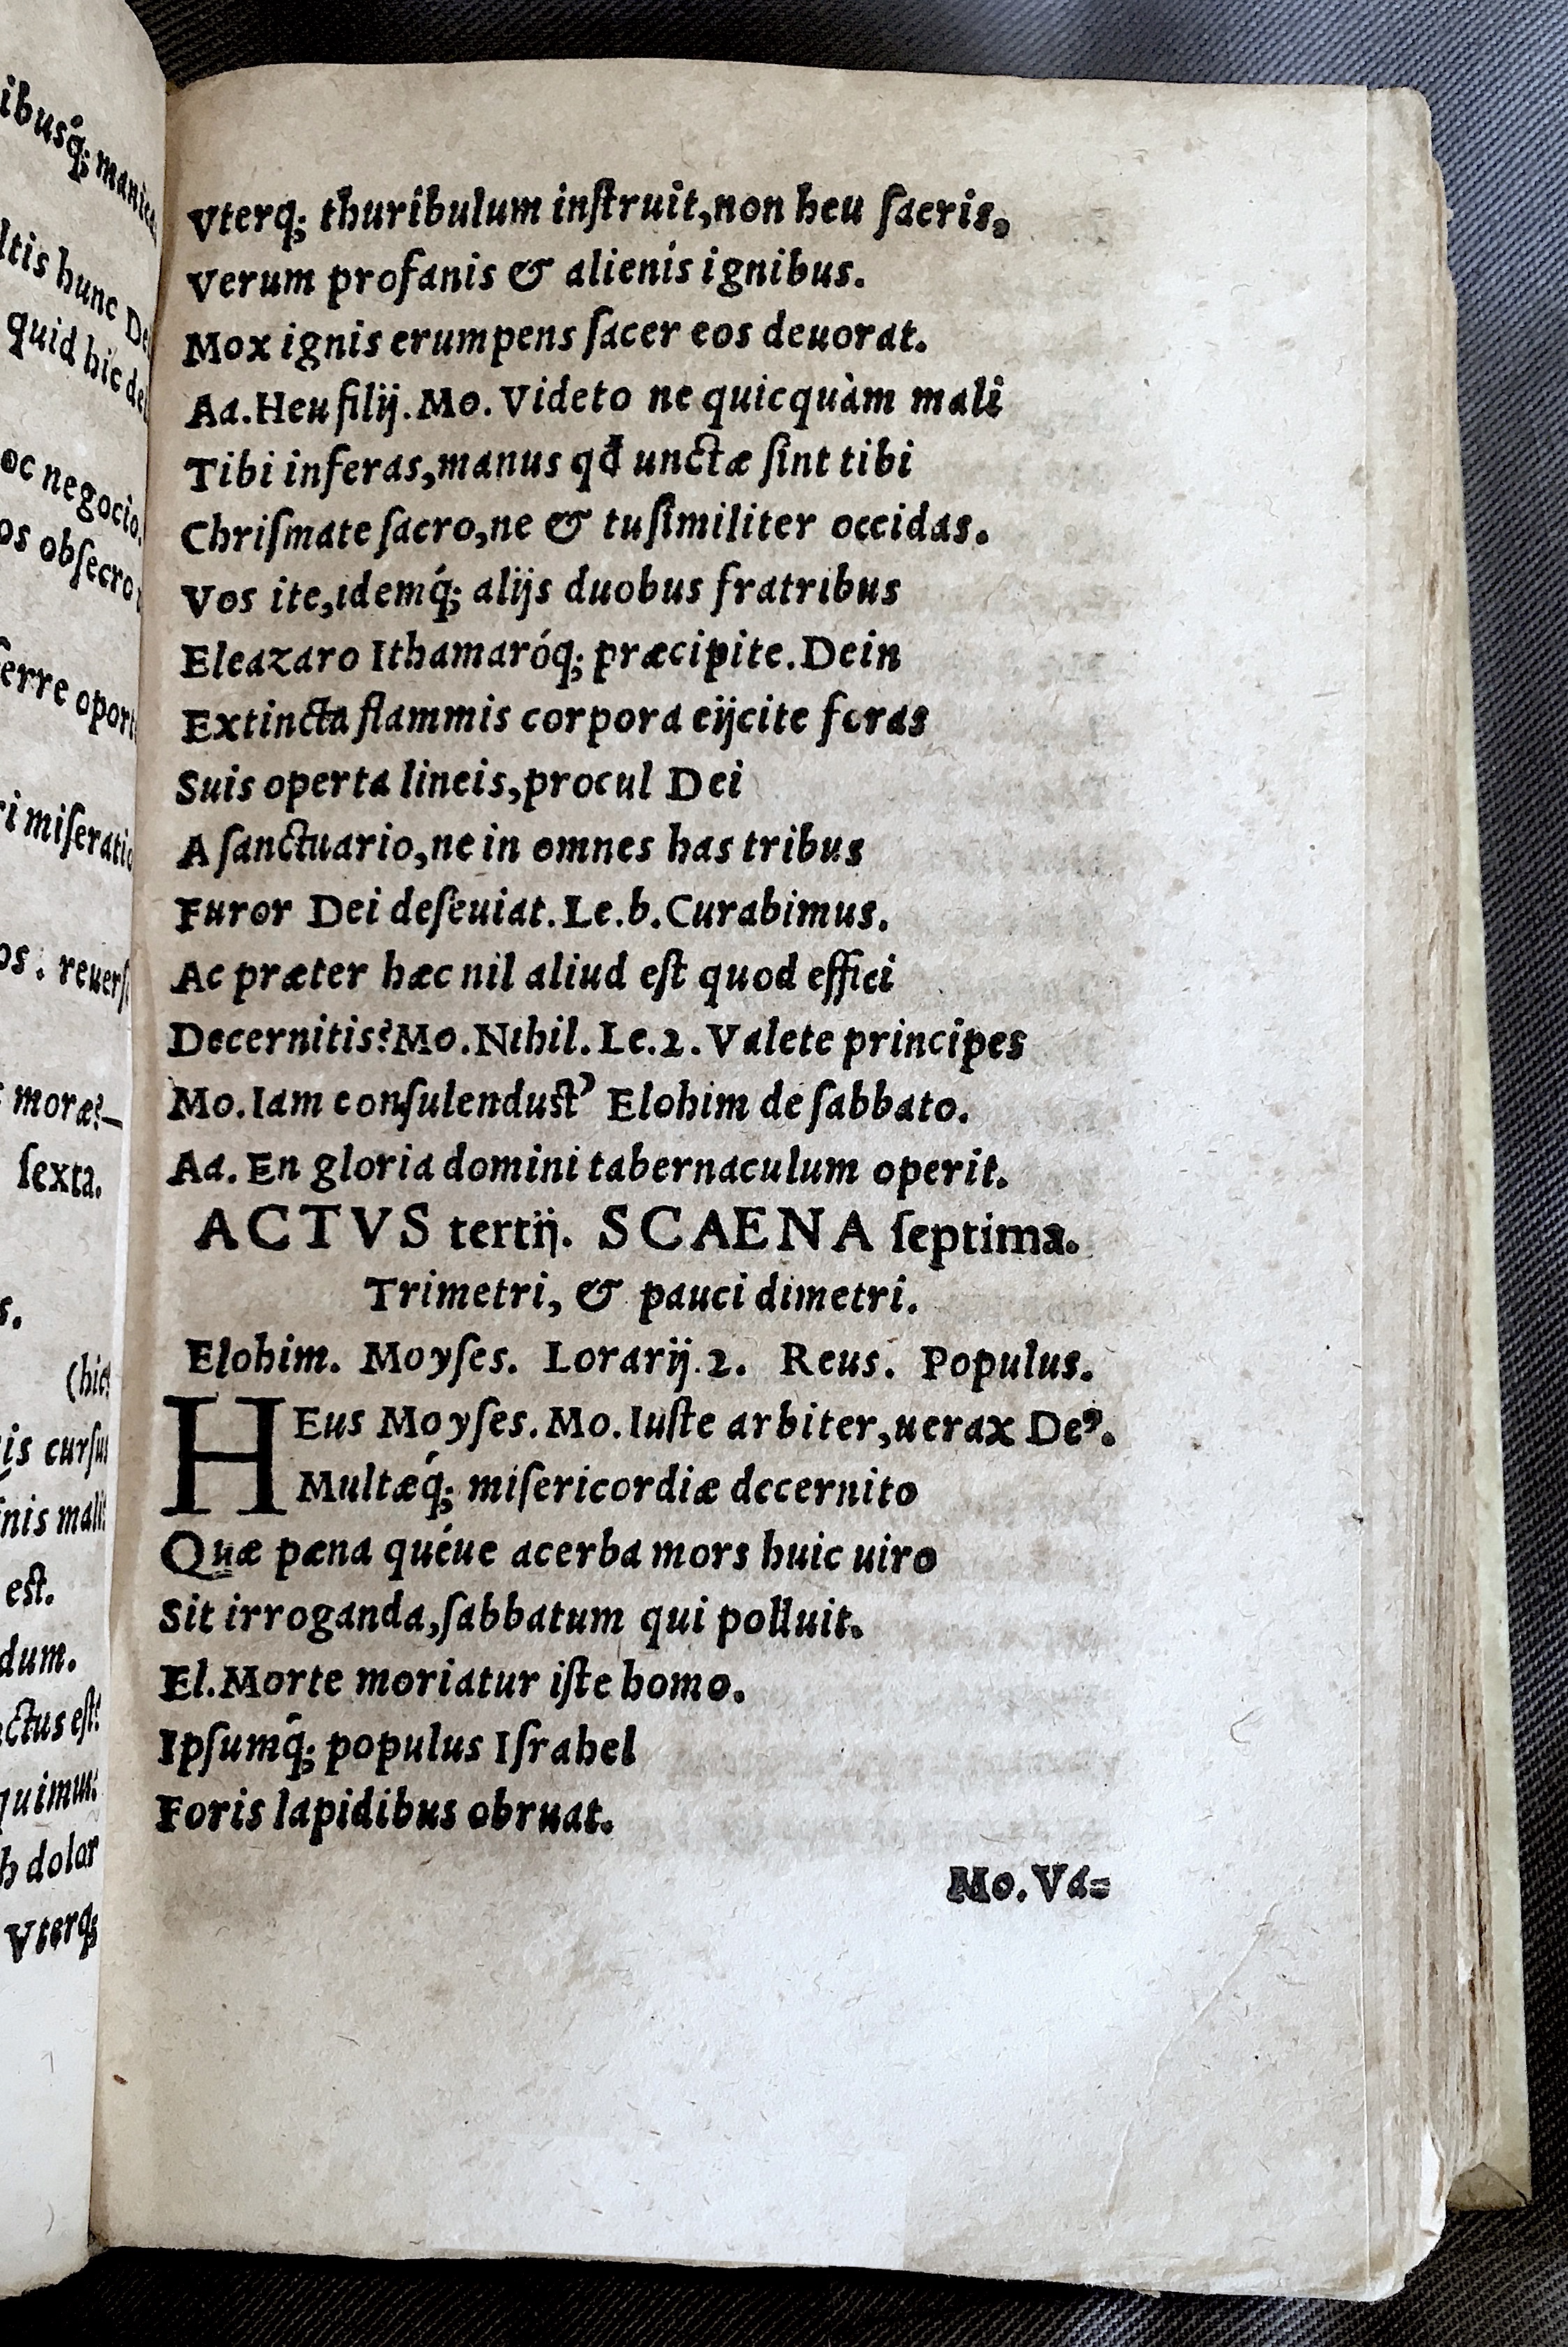 ibusq́; manic
ltis hunc De
quid hic de
oc negocio.
os obſecro
ferre oport
ri miſeratio
os : reuerſ
moræ?—
ſexta.
s.
(hic
is curſu
nis mali
est.
dum.
ctus eſt:
quimus
h dolor
Vterq;
Vterq; thuribulum inſtruit,non heu ſacris,
Verum profanis & alienis ignibus.
Mox ignis erumpens ſacer eos deuorat.
Aa.Heu filij.Mo.Videto ne quicquàm mali
Tibi inferas,manus qđ unctæ ſint tibi
Chriſmate ſacro,ne & tu ſimiliter occidas.
Vos ite,idemq́; alijs duobus fratribus
Eleazaro Ithamaróq; præcipite.Dein
Extincta flammis corpora eijcite foras
Suis operta lineis,procul Dei
A ſanctuario,ne in omnes has tribus
Furor Dei deſeuiat.Le.b.Curabimus.
Ac præter hæc nil aliud eſt quod effici
Decernitis?Mo.Nihil.Le.2.Valete principes
Mo.Iam conſulenduſt’ Elohim de ſabbato.
Aa.En gloria domini tabernaculum operit.
ACTVS tertij. SCAENA ſeptima.
Trimetri, & pauci dimetri.
Elohim. Moyſes. Lorarij.2. Reus. Populus.
HEus Moyſes.Mo.Iuſte arbiter,uerax Deꝰ.
Multæq́; miſericordiæ decernito
Quæ pæna quéue acerba mors huic uiro
Sit irroganda,ſabbatum qui polluit.
El.Morte moriatur iſte homo.
Ipſumq́; populus Iſrahel
Foris lapidibus obruat.
Mo.Va=